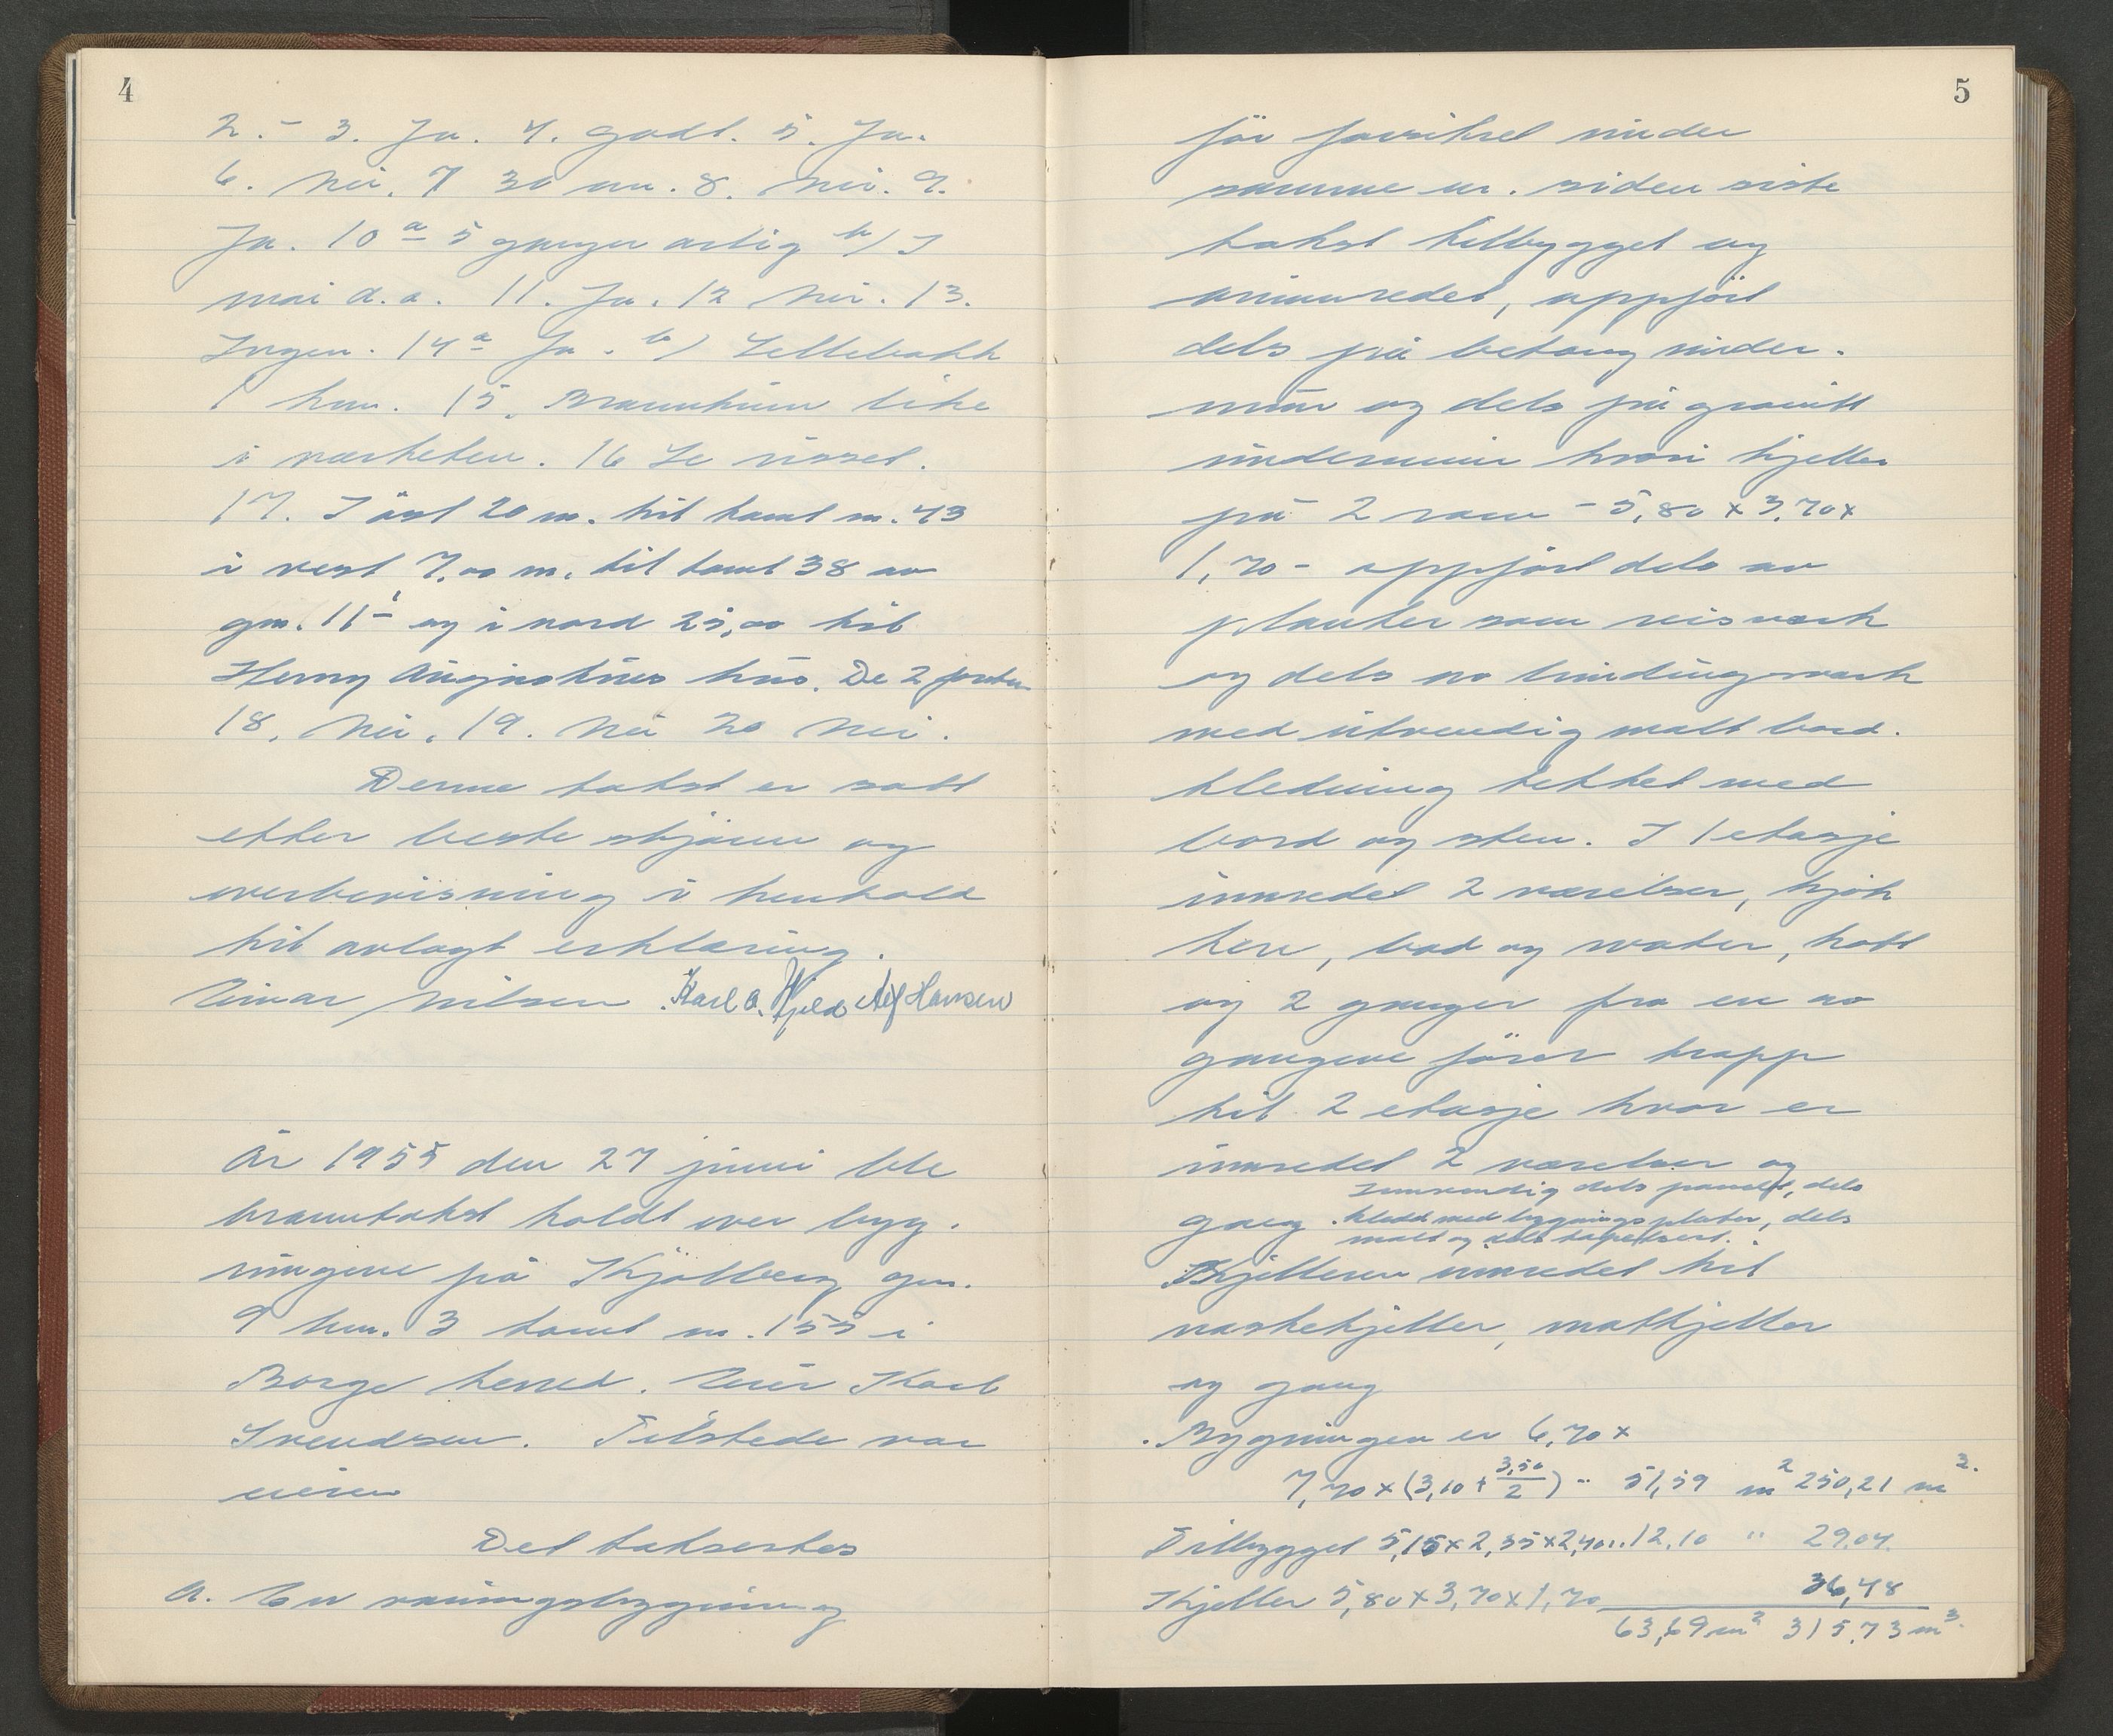 4
2. - 3. Ja. 4. godt. 5. Ja.
6. Nei. 7 30 cm. 8. Nei. 9.
Ja. 10 a 5 ganger årlig b/ I
mai d.å. 11. Ja. 12 Nei. 13.
Ingen. 14 a Ja. b/ Sellebakk
1 km. 15. Brannkum like
i nærheten. 16 Se risset.
17. I öst 20 m. til tomt nr. 43
i vest 7,00 m. til tomt 38 av
gnr. 11 og i nord 25,00 til
Henry Augustsens hus. De 2 første
18. Nei. 19. Nei 20 Nei.
Denne takst er satt
etter beste skjønn og
overbevisning i henhold
til avlagt erklæring.
Einar Nilsen Karl O. Kjeld Alf Hansen
År 1955 den 27 juni ble
branntakst holdt over byg-
ningene på Kjölberg gnr.
9 bnr. 3 tomt nr. 155 i
Borge herred. Eier Karl
Svendsen. Tilstede var
eieren
Det takseres
A. En våningsbygning
5
för forsikret under
samme nr. siden siste
takst tilbygget og
ominnredet, oppfört
dels på betong under-
mur og dels på granitt
undermur hvori kjeller
på 2 rom - 5,80 x 3,70 x
1,70 - oppfört dels av
planker som reisverk
og dels av bindingsverk
med utvendig malt bord-
kledning tekket med
bord og sten. I 1 etasje
innredet 2 værelser, kjök
ken, bad og water, kott
og 2 ganger fra en av
gangene förer trapp
til 2 etasje hvor er
innredet 2 værelser og
Innvendig dels panelt, dels
gang. kledt med bygningsplater, dels
malt og dels tapetsert.
Kjelleren innredet til
vaskekjeller, matkjeller
og gang
Bygningen er 6,70 x
7,70 x (3,10 + 3,50/2) = 51,59 m2 250,21 m3.
Tilbygget 5,15 x 2,35 x 2,40 .. 12,10 " 29,04.
Kjeller 5,80 x 3,70 x 1,70 36,48
63,69 m2 315,73 m3.